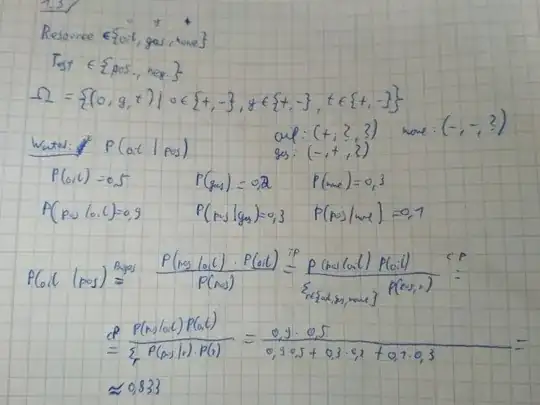 1.3)
Resource ∈ {oil, gas, none}
Test ∈ {pos., neg.}
Ω = {(o, g, t) | o ∈ {+, -}, g ∈ {+, -}, t ∈ {+, -}}
oil: (+, ?, ?) none: (-, -, ?)
gas: (-, +, ?)
Wanted: P(oil | pos)
P(oil) = 0,5 P(gas) = 0,2 P(none) = 0,3
P(pos | oil) = 0,9 P(pos | gas) = 0,3 P(pos | none) = 0,1
P(oil | pos) = Bayes P(pos | oil) · P(oil) / P(pos) = TP P(pos | oil) P(oil) / Σ r∈{oil, gas, none} P(pos, r) = CP
= CP P(pos | oil) P(oil) / Σr P(pos | r) · P(r) = 0,9 · 0,5 / 0,9·0,5 + 0,3·0,2 + 0,1·0,3 =
≈ 0,833